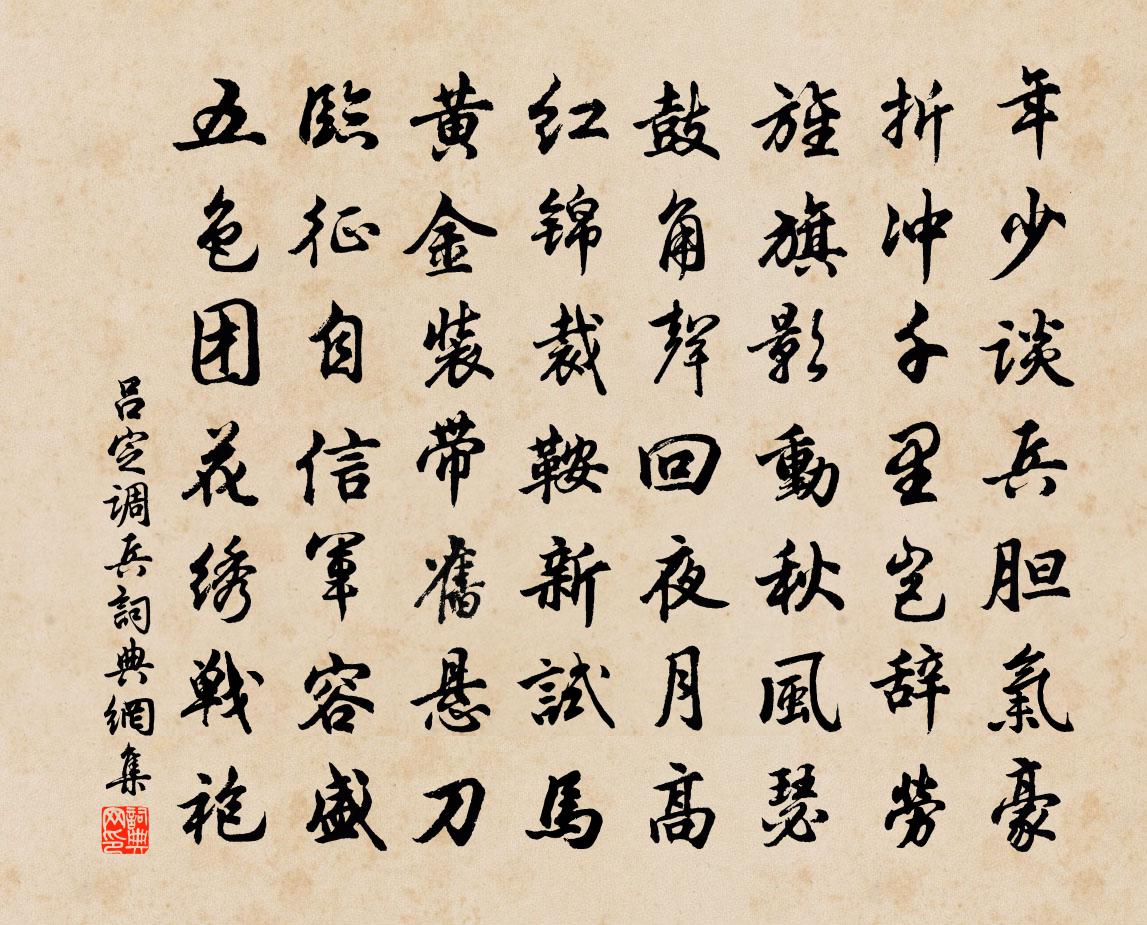 年少谈兵胆氣豪
折冲千里岂辞勞
旌旗影動秋風瑟
鼓角聲回夜月高
红锦裁鞍新試馬
黄金装带舊悬刀
臨征自信軍容盛
五色团花绣戦袍
吕定调兵詞典網集
詞典網印